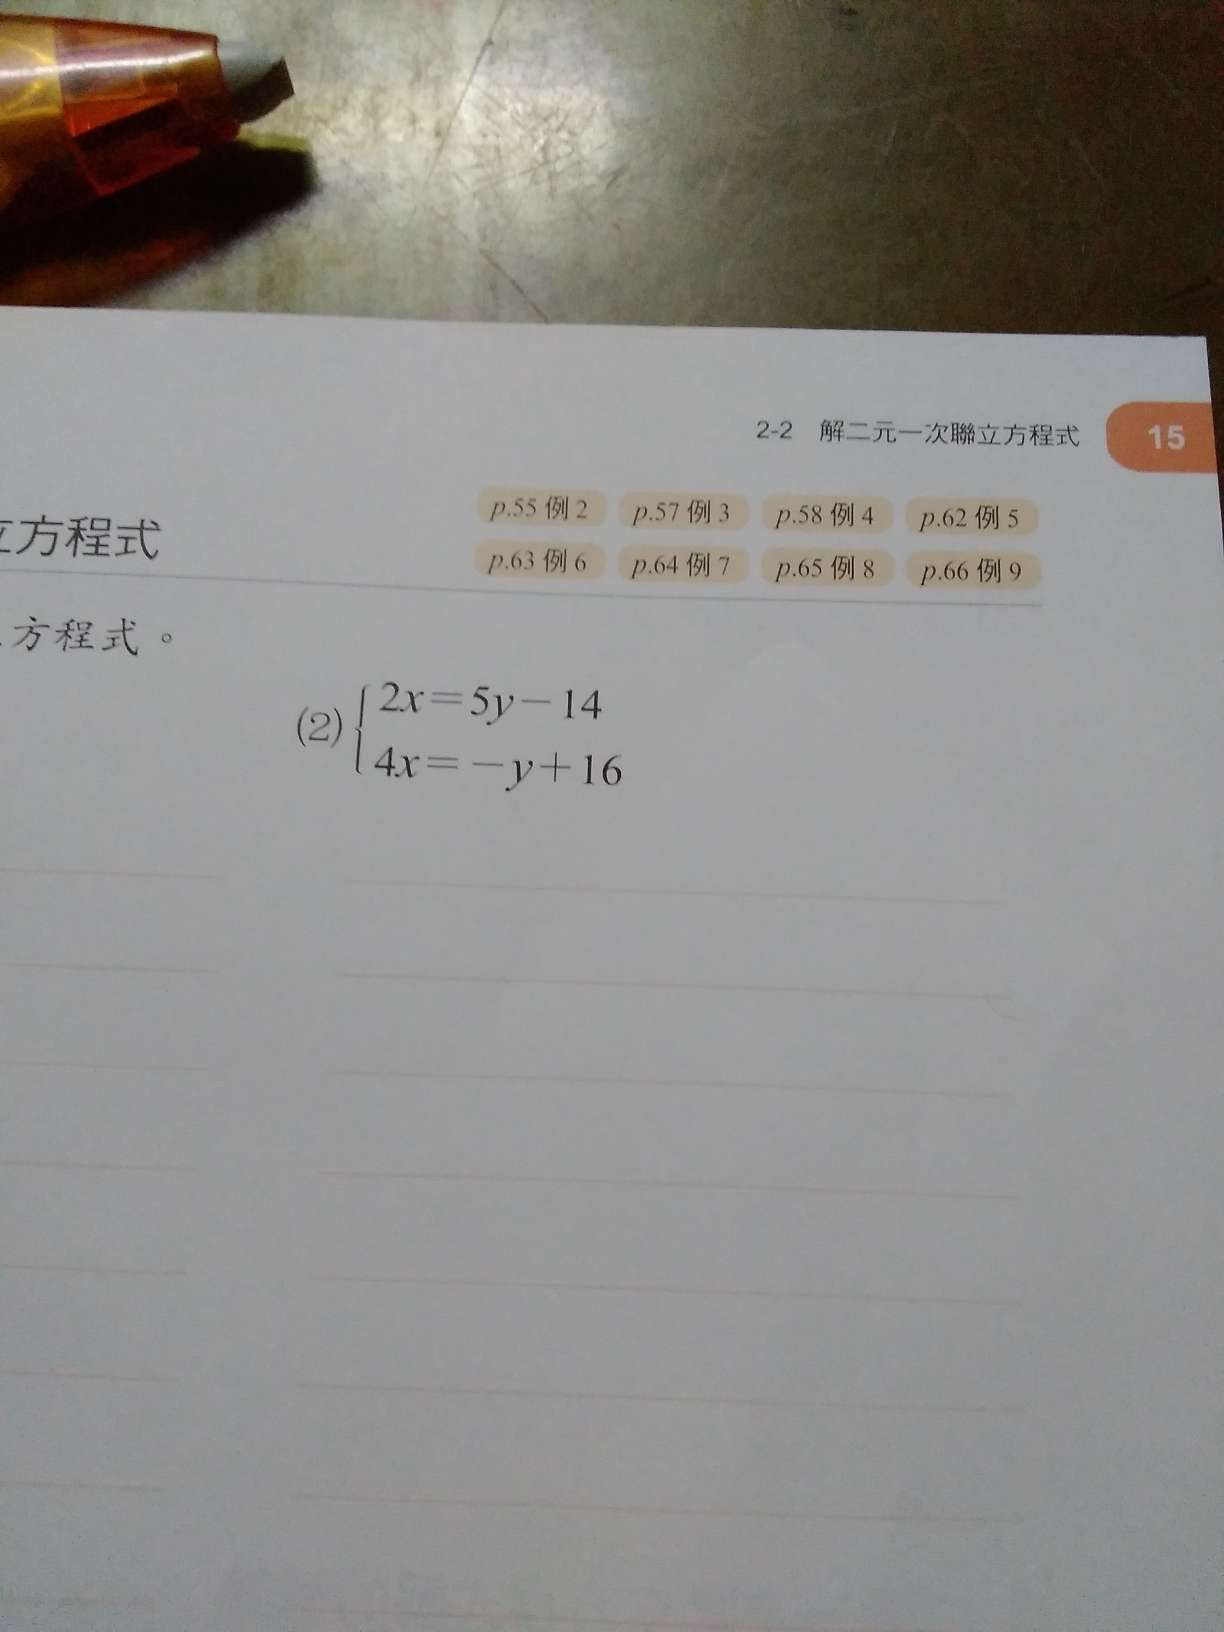 2-2 解二元一次聯立方程式 15
立方程式
p.55 例 2 p.57 例 3 p.58 例 4 p.62 例 5
p.63 例 6 p.64 例 7 p.65 例 8 p.66 例 9
方程式。
(2) { 2x=5y-14
4x=-y+16